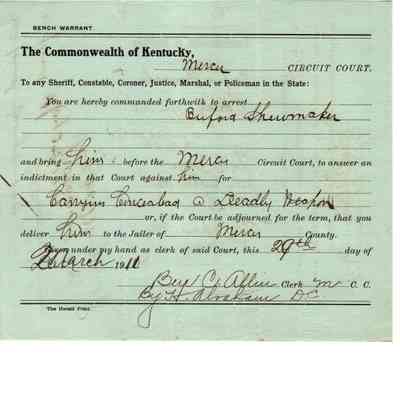 BENCH WARRANT.
The Commonwealth of Kentucky,
Mercer CIRCUIT COURT.
To any Sheriff, Constable, Coroner, Justice, Marshal, or Policeman in the State:
You are hereby commanded forthwith to arrest
Buford Shewmaker
and bring him before the Mercer Circuit Court, to answer an
indictment in that Court against him for
Carrying Concealed a Deadly Weapon
or, if the Court be adjourned for the term, that you
deliver him to the Jailer of Mercer County.
Given under my hand as clerk of said Court, this 29th day of
March 1911
Ben C. Allin Clerk M C. C.
By H. Abraham D C
The Herald Print.